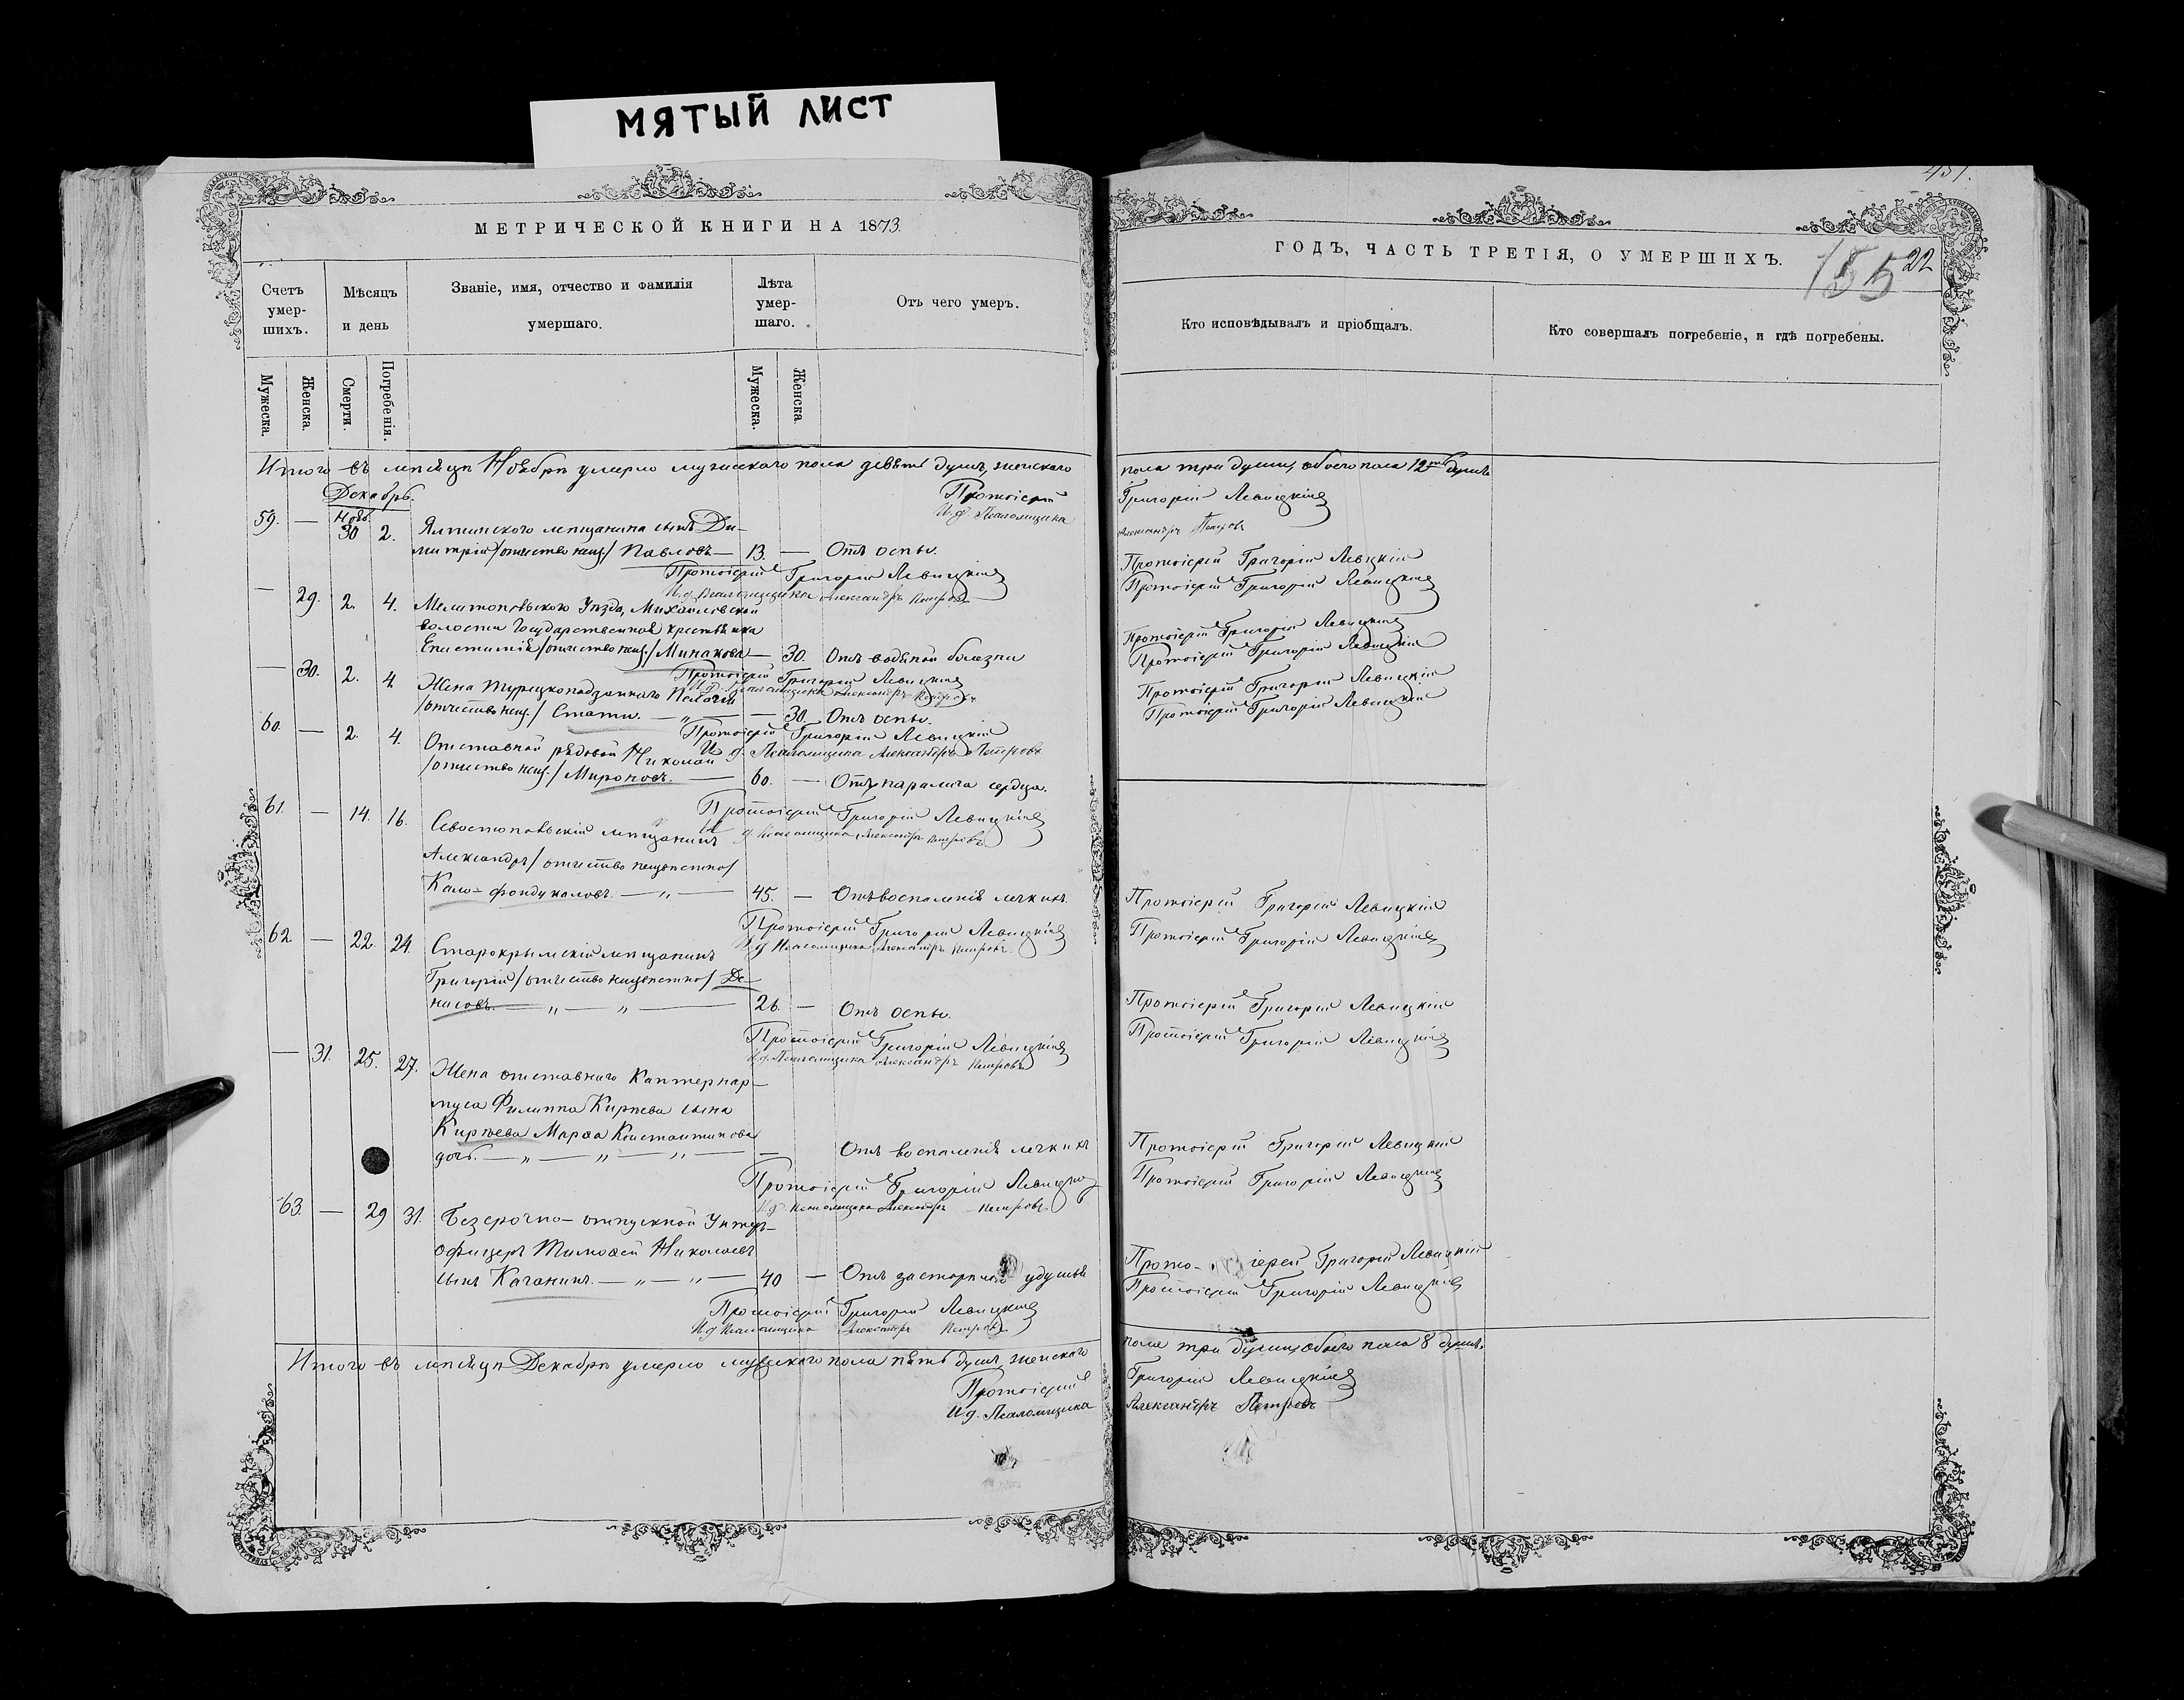 МЯТЫЙ ЛИСТ
МЕТРИЧЕСКОЙ КНИГИ НА 1873.
Счетъ умер-шихъ.
Мѣсяцъ и день
Званіе, имя, отчество и фамилія умершаго.
Лѣта умер-шаго.
Отъ чего умеръ.
Мужеска.
Женска.
Смерти.
Погребенія.
Мужеска.
Женска
Итого въ мѣсяцѣ Ноябрѣ умерло мужескаго пола девять душъ, женскаго
Декабрь.
Протоіерей
И. д. Псаломщика
59. — Нояб. 30 2. Ялтинского мѣщанина сынъ Ди-
митрій /отчество неиз./ Павловъ — 13. — Отъ оспы.
Протоіерей Григорій Левицкій
И. д. Псаломщика Александръ Петровъ
— 29. 2. 4. Мелитопольского Уѣзда, Михайловской
волости Государственная крестьянка
Епистимія /отчество неиз./ Минакова — 30. Отъ водяной болезни
Протоіерей Григорій Левицкій
И. д. Псаломщика Александръ Петровъ
— 30. 2. 4. Жена Турецкоподданного Пелагія
/отчество неиз./ Стати. — „ — — 30. Отъ оспы.
Протоіерей Григорій Левицкій
И. д. Псаломщика Александръ Петровъ
60. — 2. 4. Отставной рядовой Николай
/отчество неиз./ Мироновъ. — 60. — Отъ паралича сердца.
Протоіерей Григорій Левицкій
И. д. Псаломщика Александръ Петровъ
61. — 14. 16. Севостопольскій мѣщанинъ
Александръ /отчество неизвестно/
Кало-фондукаловъ. — „ — 45. — Отъ воспаленія легкихъ.
Протоіерей Григорій Левицкій
И. д. Псаломщика Александръ Петровъ
62. — 22. 24. Старокрымскій мѣщанинъ
Григорій /отчество неизвестно/ Де-
нисовъ. — „ — „ — 26. — Отъ оспы.
Протоіерей Григорій Левицкій
И. д. Псаломщика Александръ Петровъ
— 31. 25. 27. Жена отставнаго Каптенар-
муса Филиппа Киреева сына
Киреева Марѳа Константинова
дочь. — „ — „ — „ — — Отъ воспаленія легкихъ
Протоіерей Григорій Левицкій
И. д. Псаломщика Александръ Петровъ
63. — 29 31. Безсрочно-отпускной Унтер-
офицеръ Тимоѳей Николаевъ
сынъ Каганинъ. — „ — „ — 40 — Отъ удушья
Протоіерей Григорій Левицкій
И. д. Псаломщика Александръ Петровъ
Итого въ мѣсяцѣ Декабрѣ умерло мужескаго пола пять душъ, женскаго
Протоіерей
И. д. Псаломщика
431.
ГОДЪ, ЧАСТЬ ТРЕТІЯ, О УМЕРШИХЪ.
155 22
Кто исповѣдывалъ и пріобщалъ.
Кто совершалъ погребеніе, и гдѣ погребены.
пола три души, обоего пола 12ть душъ
Григорій Левицкій
Александръ Петровъ
Протоіерей Григорій Левицкій
Протоіерей Григорій Левицкій
Протоіерей Григорій Левицкій
Протоіерей Григорій Левицкій
Протоіерей Григорій Левицкій
Протоіерей Григорій Левицкій
Протоіерей Григорій Левицкій
Протоіерей Григорій Левицкій
Протоіерей Григорій Левицкій
Протоіерей Григорій Левицкій
Протоіерей Григорій Левицкій
Протоіерей Григорій Левицкій
Прото- іерей Григорій Левицкій
Протоіерей Григорій Левицкій
пола три души, обоего пола 8 душъ.
Григорій Левицкій
Александръ Петровъ